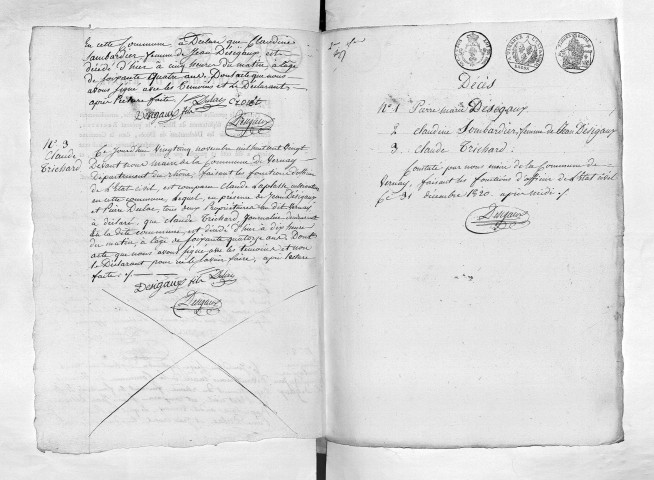 En cette Commune a Déclaré que Claudine
Lombardier femme de Jean Désigaux est
décédé d'hier à cinq heures du matin, a l'age
de soixante quatre ans. Dont acte que nous
avons signé avec les temoins et le Declarant
après lecture faite
Desigaux fils Dulac
Desigaux
N° 3
Claude
Trichard
Ce jourdhui vingt novembre mil huit cent vingt
Devant nous maire de la Commune de Vernay
Département du rhone, faisant les fonctions d'officier
de l'Etat civil, est comparu Claude Laplasse
en cette commune, lequel, en presence de Jean Désigaux
et Pierre Dulac, tous deux Propriétaires au dit Vernay
a déclaré, que Claude Trichard Journalier demeurant
En la dite commune, est décédé d'hier à dix heures
du matin, à l'age de soixante quatorze ans. Dont
acte que nous avons signé avec les temoins et non
le Déclarant pour ne le savoir faire, après lecture
faite
Desigaux fils Dulac
Desigaux
Décès
N° 1 Pierre-marie Desegaux
2 claudine Lombardier, femme de Jean Desigaux
3 Claude Trichard.
Constaté par nous maire de la Commune de
Vernay, faisant les fonctions d'officier de l'Etat civil
ce 31 décembre 1820. après midi
Desigaux